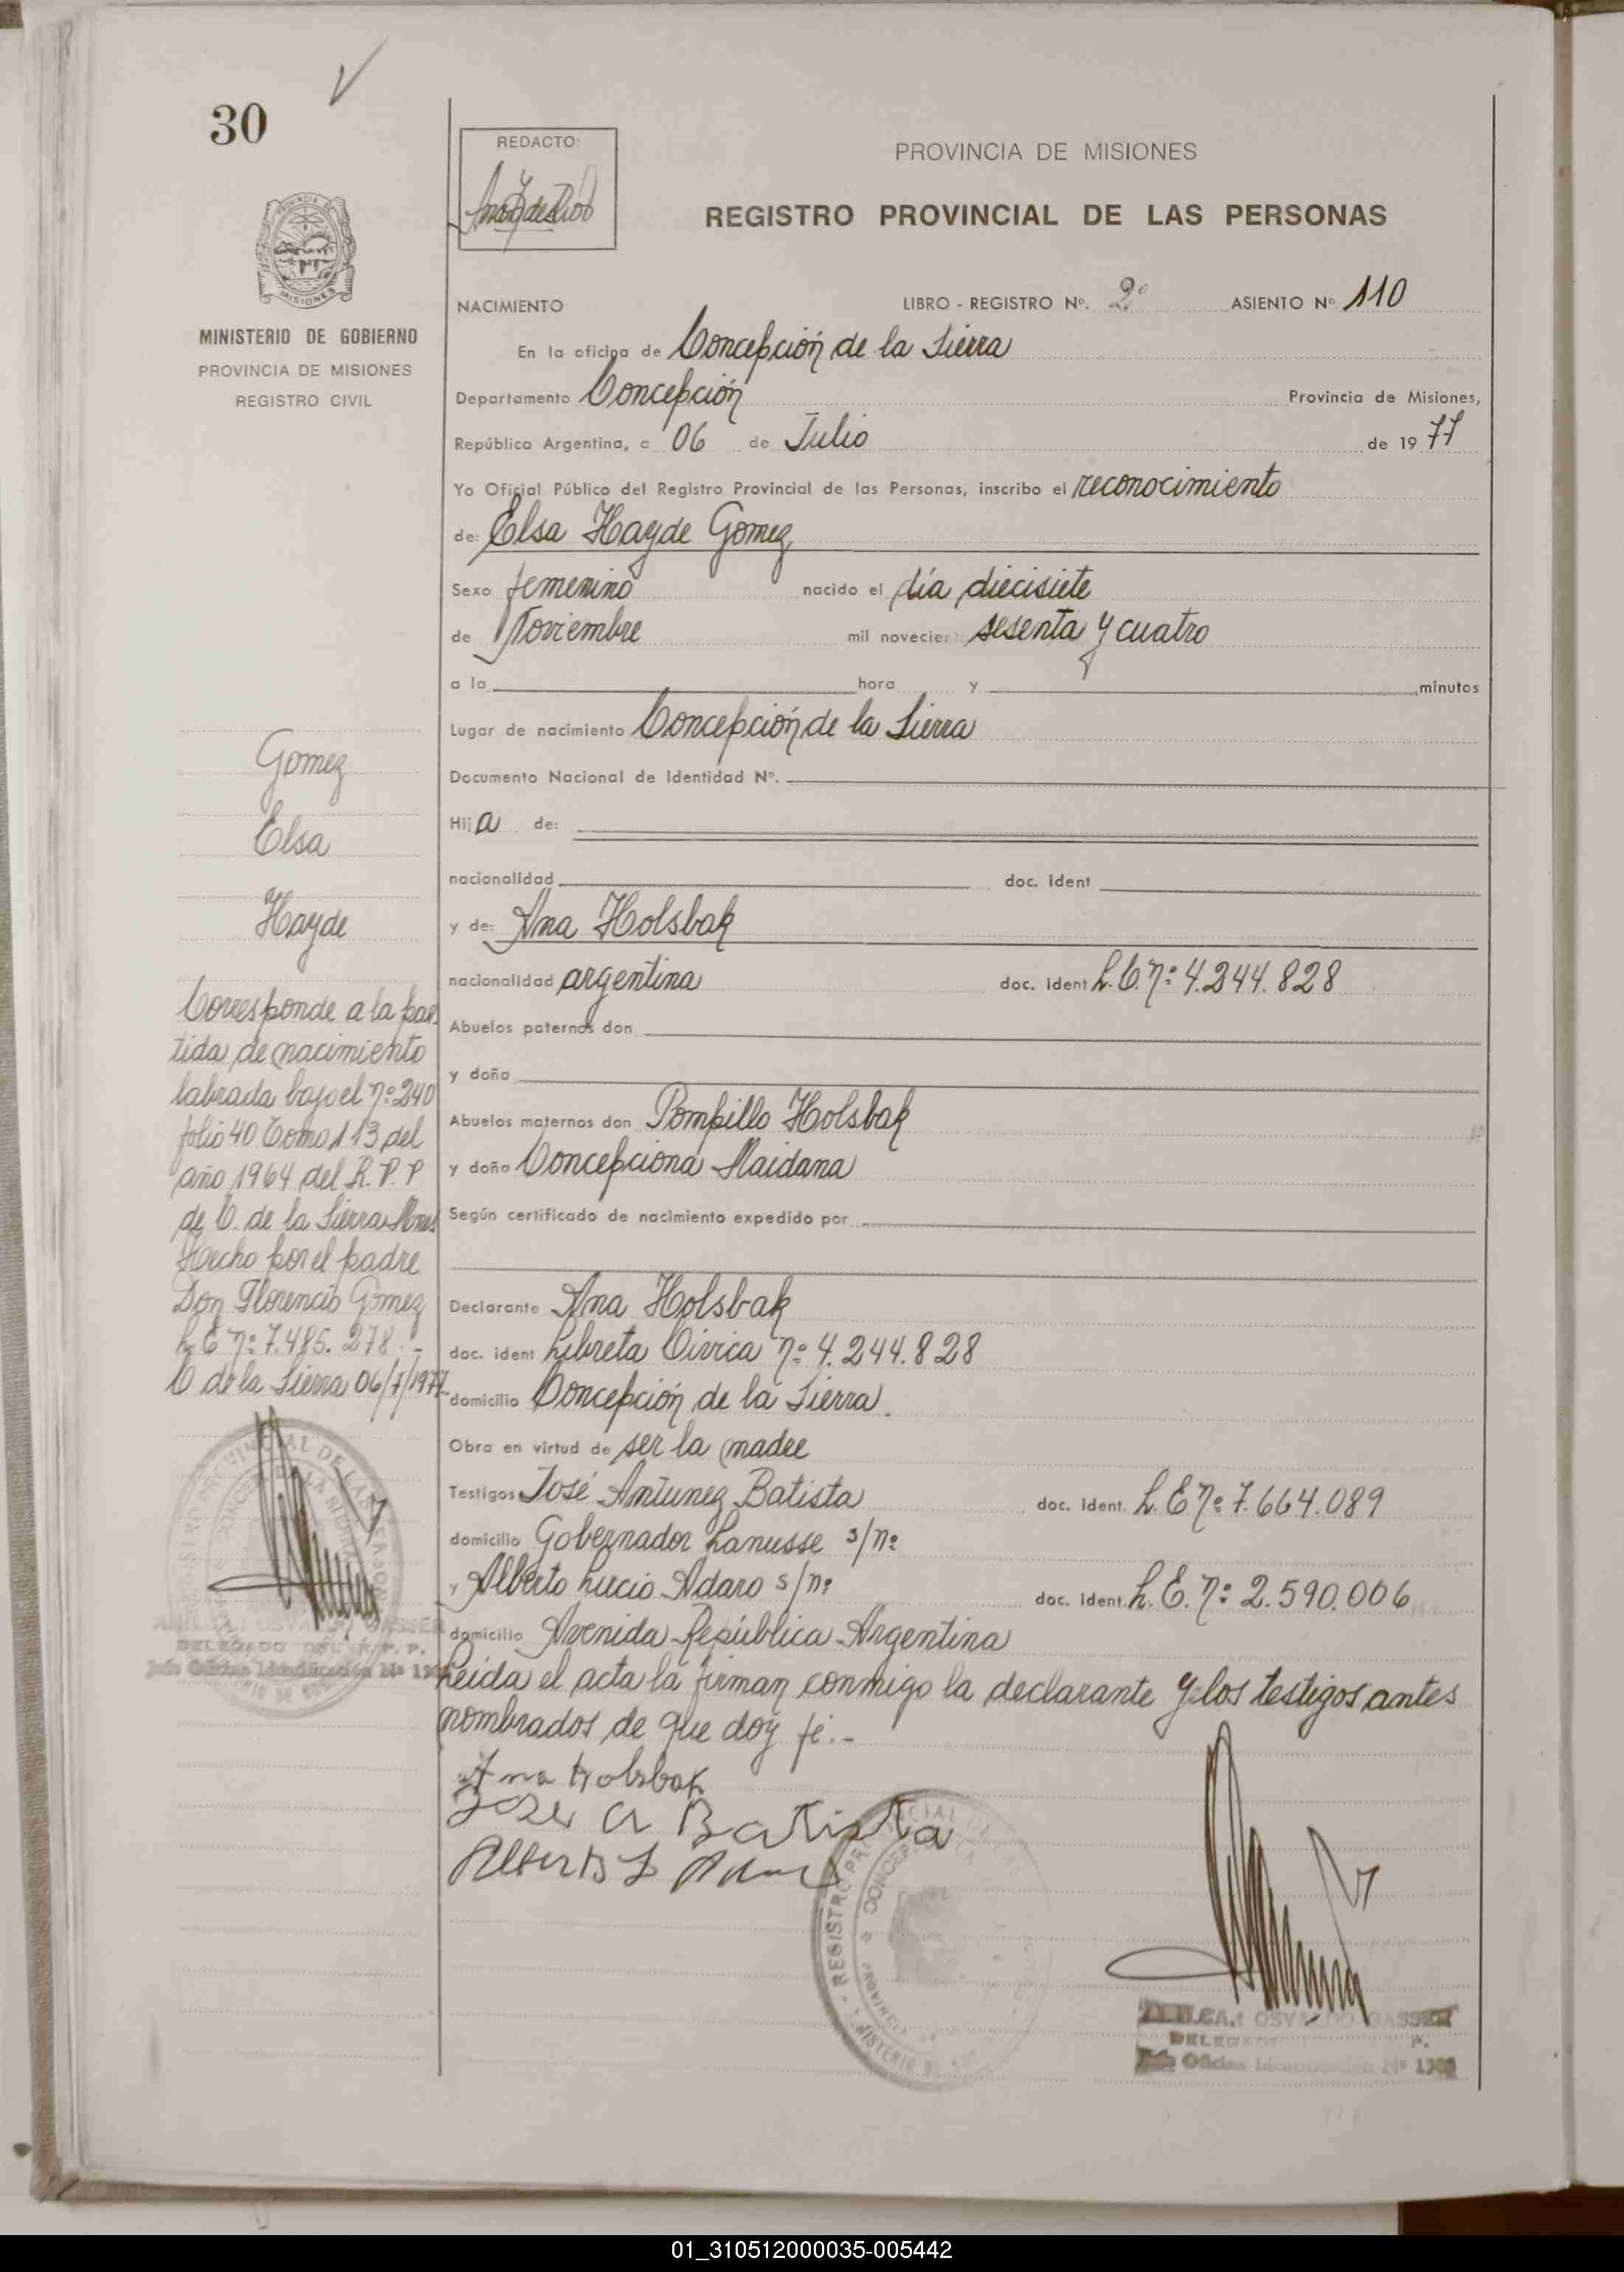 30
REDACTO:
PROVINCIA DE MISIONES
REGISTRO PROVINCIAL DE LAS PERSONAS
MISIONES
MINISTERIO DE GOBIERNO
PROVINCIA DE MISIONES
REGISTRO CIVIL
NACIMIENTO LIBRO - REGISTRO Nº. 2º ASIENTO Nº 110
En la oficina de Concepción de la Sierra
Departamento Concepción Provincia de Misiones,
República Argentina, a 06 de Julio de 1977
Yo Oficial Público del Registro Provincial de las Personas, inscribo el reconocimiento
de: Elsa Hayde Gomez
Sexo femenino nacido el día diecisiete
de Noviembre mil novecien sesenta y cuatro
a la hora y minutos
Lugar de nacimiento Concepción de la Sierra
Documento Nacional de Identidad Nº.
Hija de:
nacionalidad doc. ident
y de: Ana Holsbak
nacionalidad argentina doc. ident L.C. nº 4.244.828
Abuelos paternos don
y doña
Abuelos maternos don Pompillo Holsbak
y doña Concepciona Maidana
Según certificado de nacimiento expedido por
Declarante Ana Holsbak
doc. ident Libreta Cívica nº 4.244.828
domicilio Concepción de la Sierra.
Obra en virtud de ser la madre
Testigos José Antunez Batista doc. ident. L.E nº 7.664.089
domicilio Gobernador Lanusse s/nº
y Alberto Lucio Adaro s/nº doc. ident. L.E. nº 2.590.006
domicilio Avenida República Argentina
Leida el acta la firman conmigo la declarante y los testigos antes
nombrados de que doy fé.-
Ana Holsbak
Jose A Batista
Alberto L Adaro
Gomez
Elsa
Hayde
Corresponde a la par
tida de nacimiento
labrada bajo el nº 240
folio 40 Tomo 113 del
año 1964 del R.P.P
de C. de la Sierra Mnes
Hecho por el padre
Don Florencio Gomez
L E nº 7.485.278.-
C de la Sierra 06/7/1977
OSVALDO GASSER
DELEGADO DEL R.P.P.
Jefe Oficina Identificación Nº
OSVALDO GASSER
DELEGADO P.
Jefe Oficina Identificación Nº
REGISTRO PROVINCIAL DE LAS
01_310512000035-005442